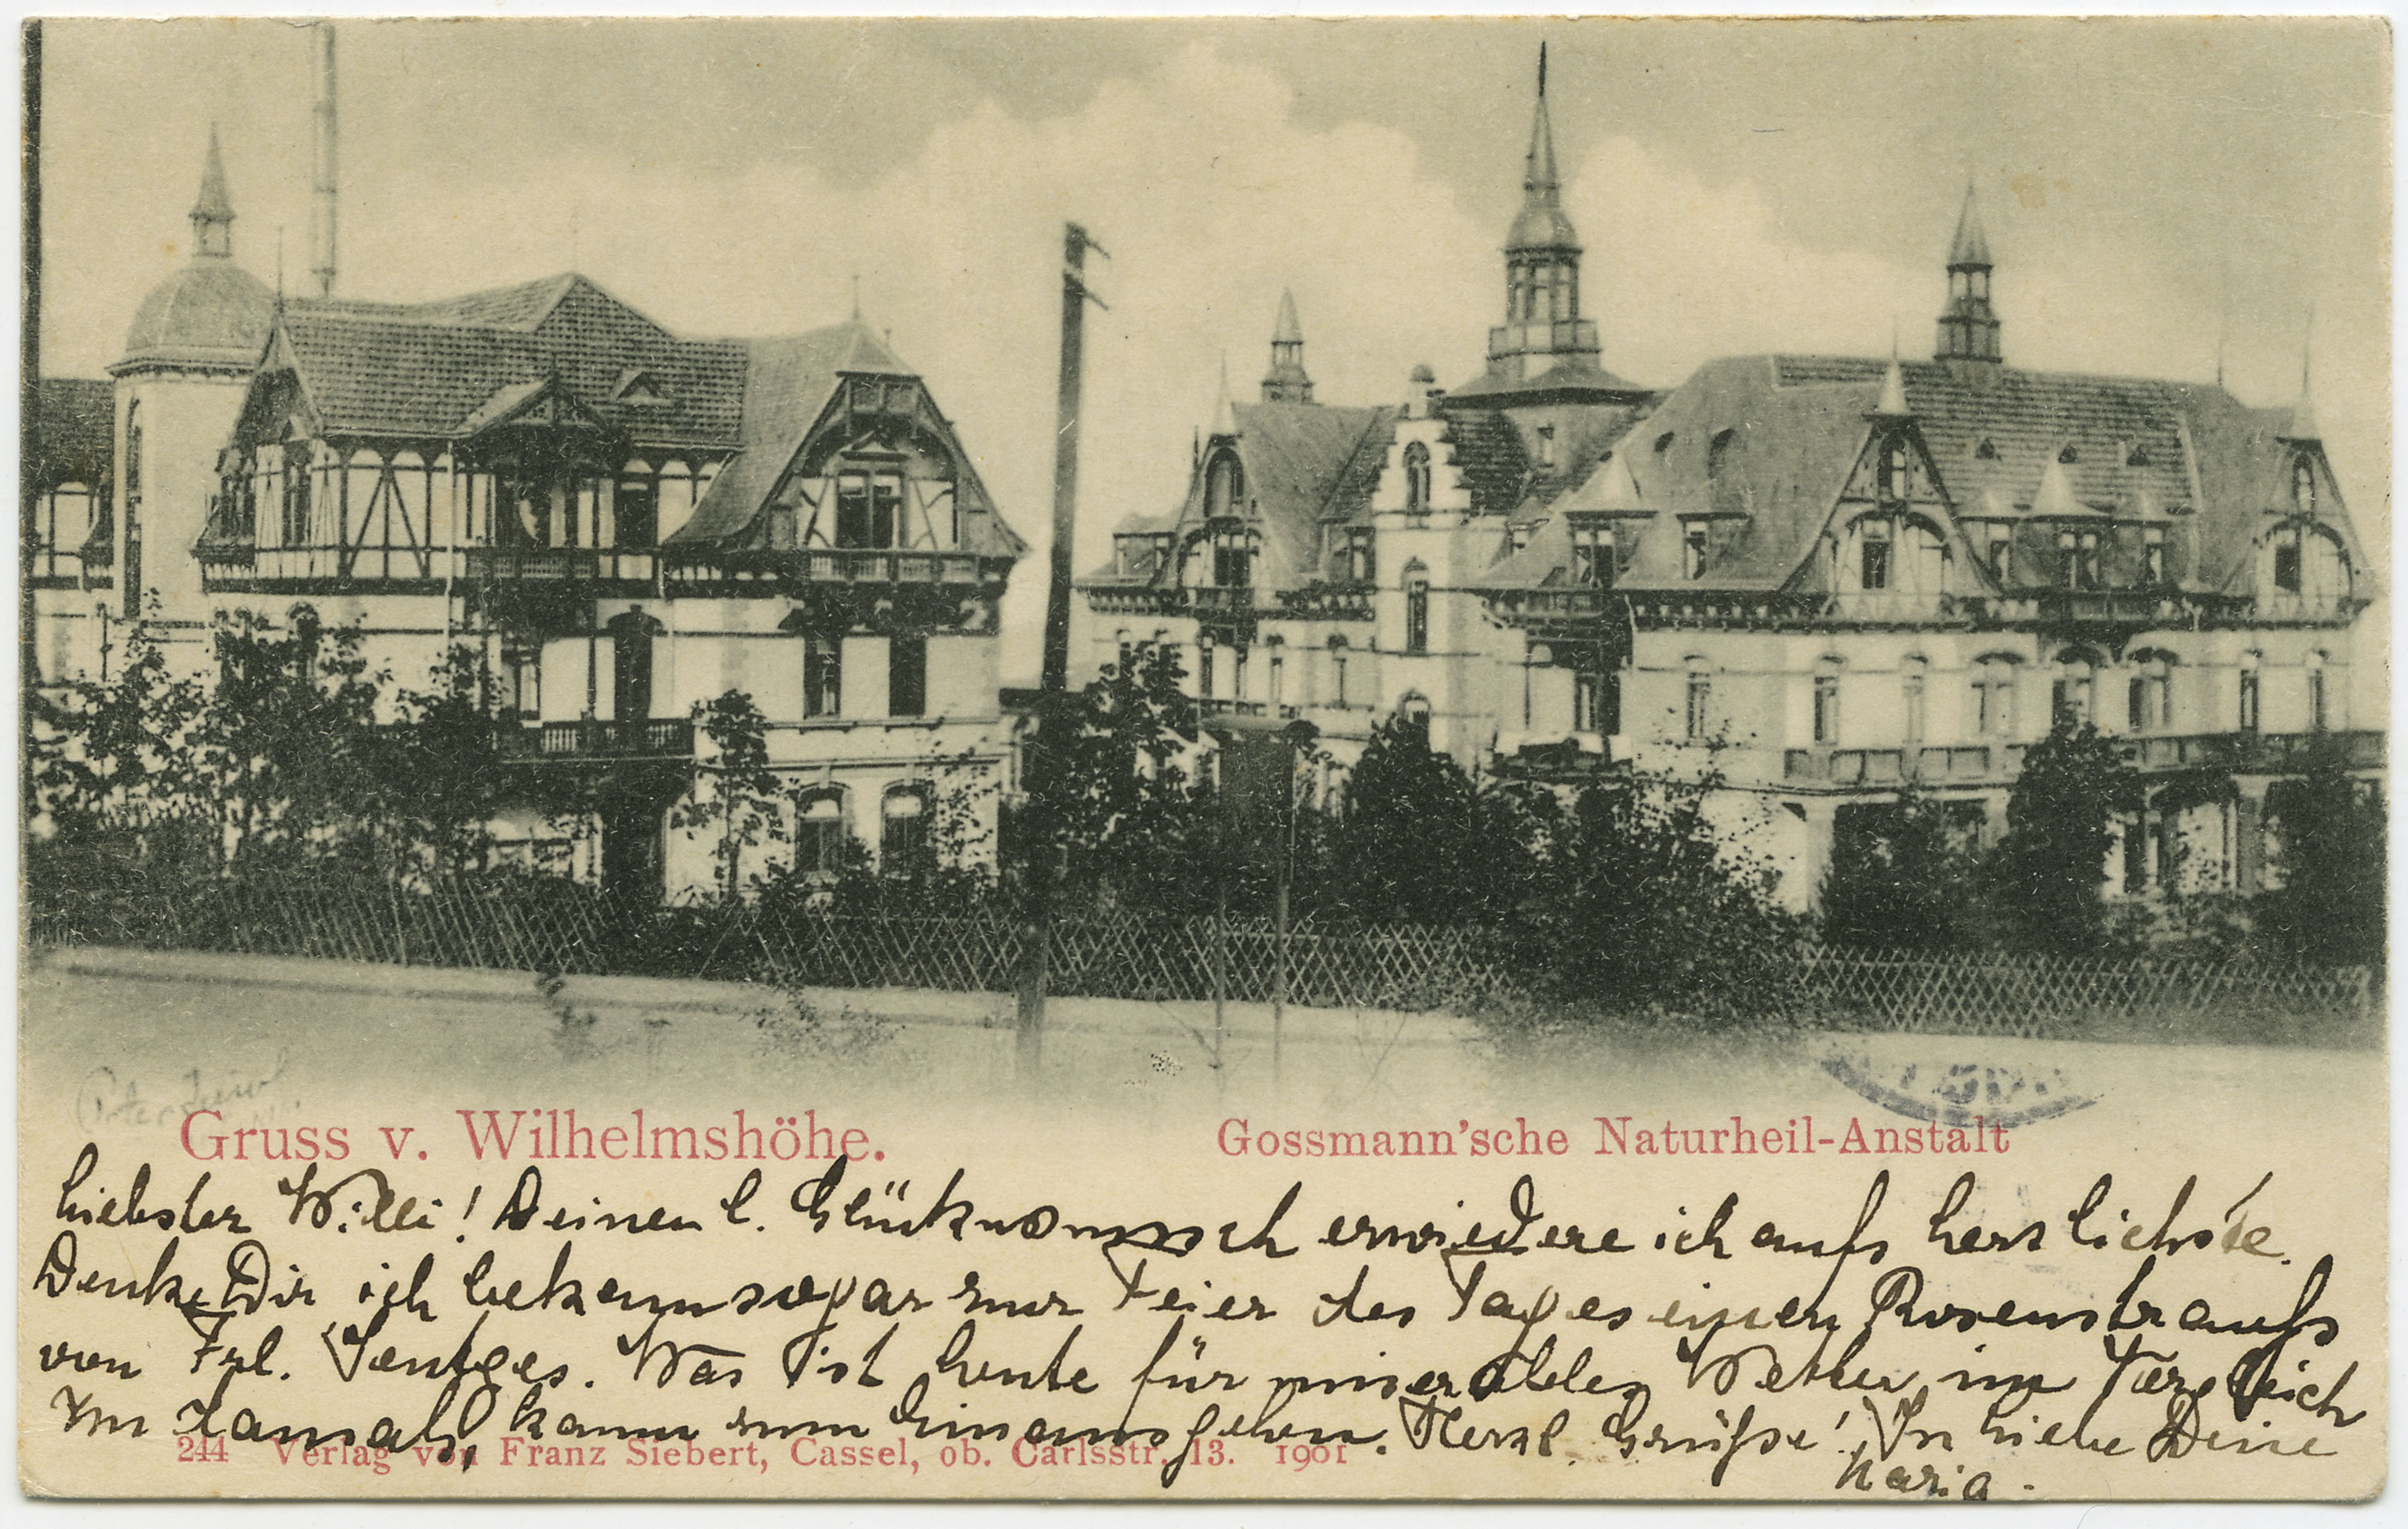 Gruss v. Wilhelmshöhe.
Gossmann'sche Naturheil-Anstalt
Liebster Willi! Deinen l. Glückwunsch erwiedere ich aufs herzlichste.
Denke Dir, ich bekam sogar zur Feier des Tages einen Rosenstrauß
von Frl. Jentges. Was ist heute für miserables Wetter, im Vergleich
zu damals, kaum zum Hinausgehen. Herzl. Grüße! In Liebe Deine
Maria.
244 Verlag von Franz Siebert, Cassel, ob. Carlsstr. 13. 1901